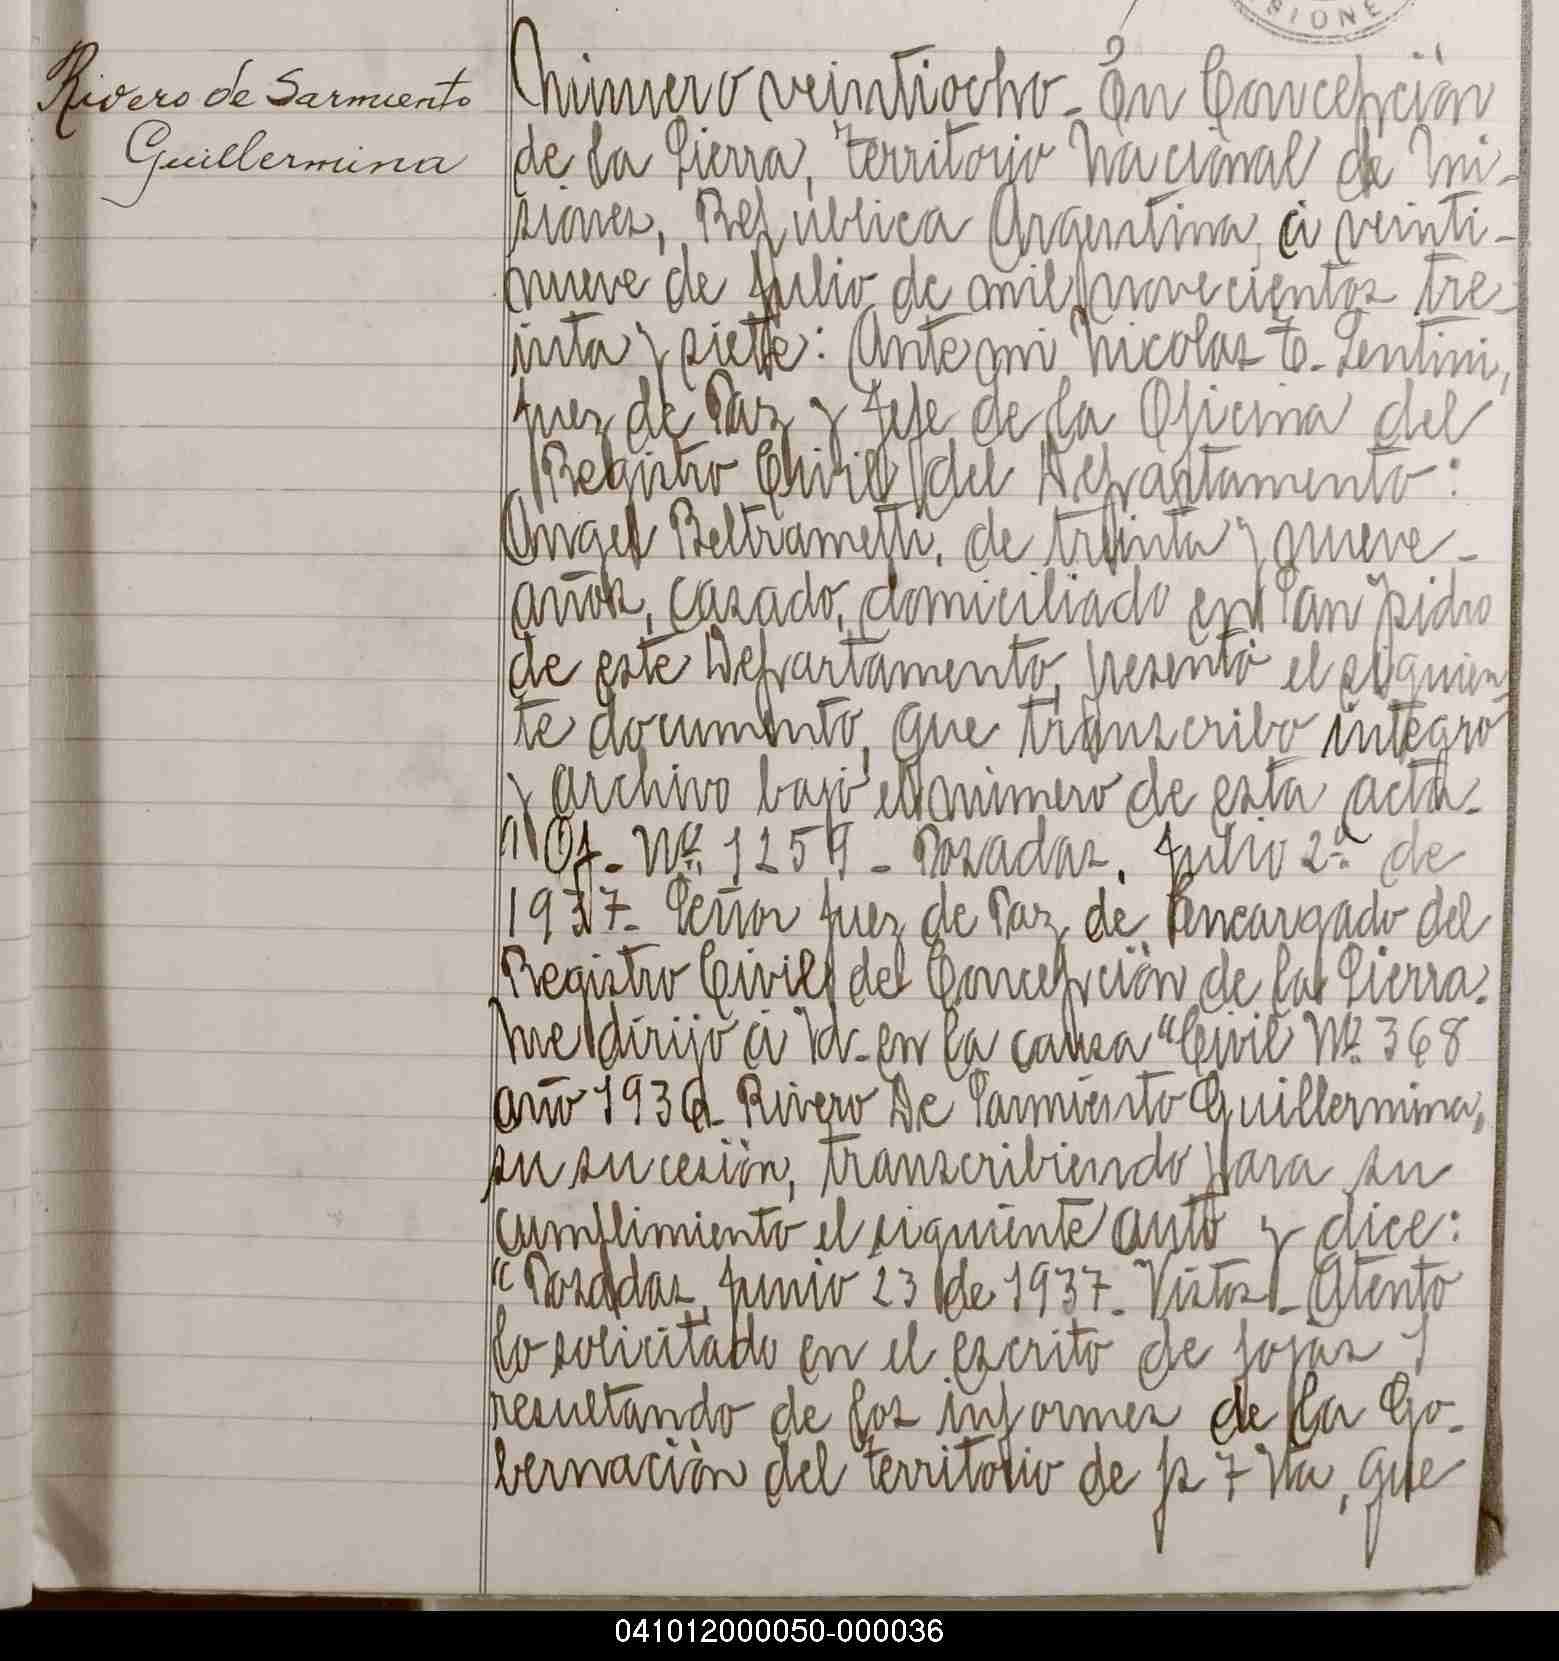 SIONE
Rivero de Sarmiento
Guillermina
Número veintiocho - En Concepción
de la Sierra, Territorio Nacional de Mi-
siones, República Argentina, á veinti-
nueve de Julio de mil novecientos tre-
inta y siete: Ante mi Nicolas E. Sentini,
Juez de Paz y Jefe de la Oficina del
Registro Civil del Departamento:
Angel Beltrametti, de treinta y nueve -
años, casado, domiciliado en San Isidro
de este Departamento, presentó el siguien
te documento, que transcribo integro
y archivo bajo el número de esta acta -
" Of - Nº 1259 - Posadas, Julio 2 de
1937 - Señor Juez de Paz de Encargado del
Registro Civil de Concepción de la Sierra.
Me dirijo á Vd - en la causa "Civil Nº 368
año 1936 - Rivero De Sarmiento Guillermina,
su sucesión, transcribiendo para su
cumplimiento el siguiente auto y dice:
"Posadas, Junio 23 de 1937 - Vistos - Atento
lo solicitado en el escrito de fojas 1
resultando de los informes de la Go-
bernación del territorio de fs 7 vta, que
041012000050-000036